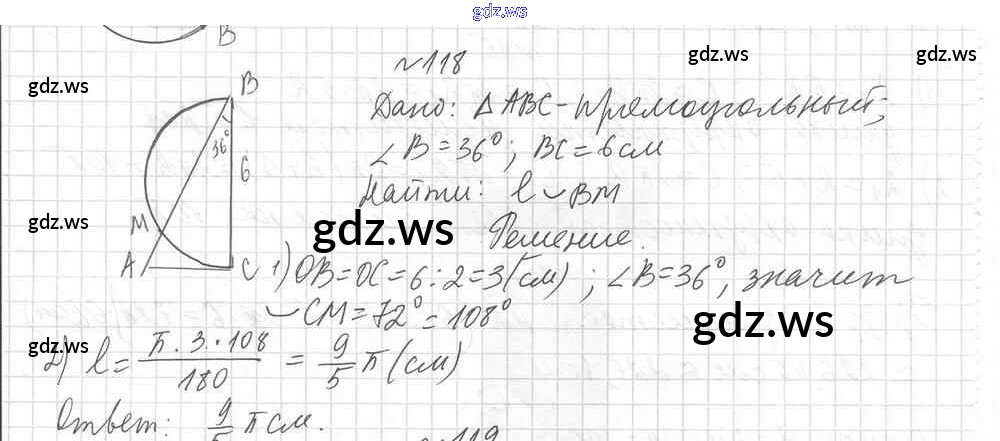 gdz.ws
B
№118
gdz.ws
gdz.ws
gdz.ws
B
Дано: △ABC - прямоугольный;
36°
6
∠B = 36°; BC = 6 см
Найти: l ◡ BM
gdz.ws
gdz.ws
M
Решение.
A
C
1) OB = OC = 6 : 2 = 3 (см); ∠B = 36°, значит
◡ CM = 72° = 108°
gdz.ws
gdz.ws
2) l = π · 3 · 108 / 180 = 9/5 π (см)
Ответ: 9/5 π см.
№119